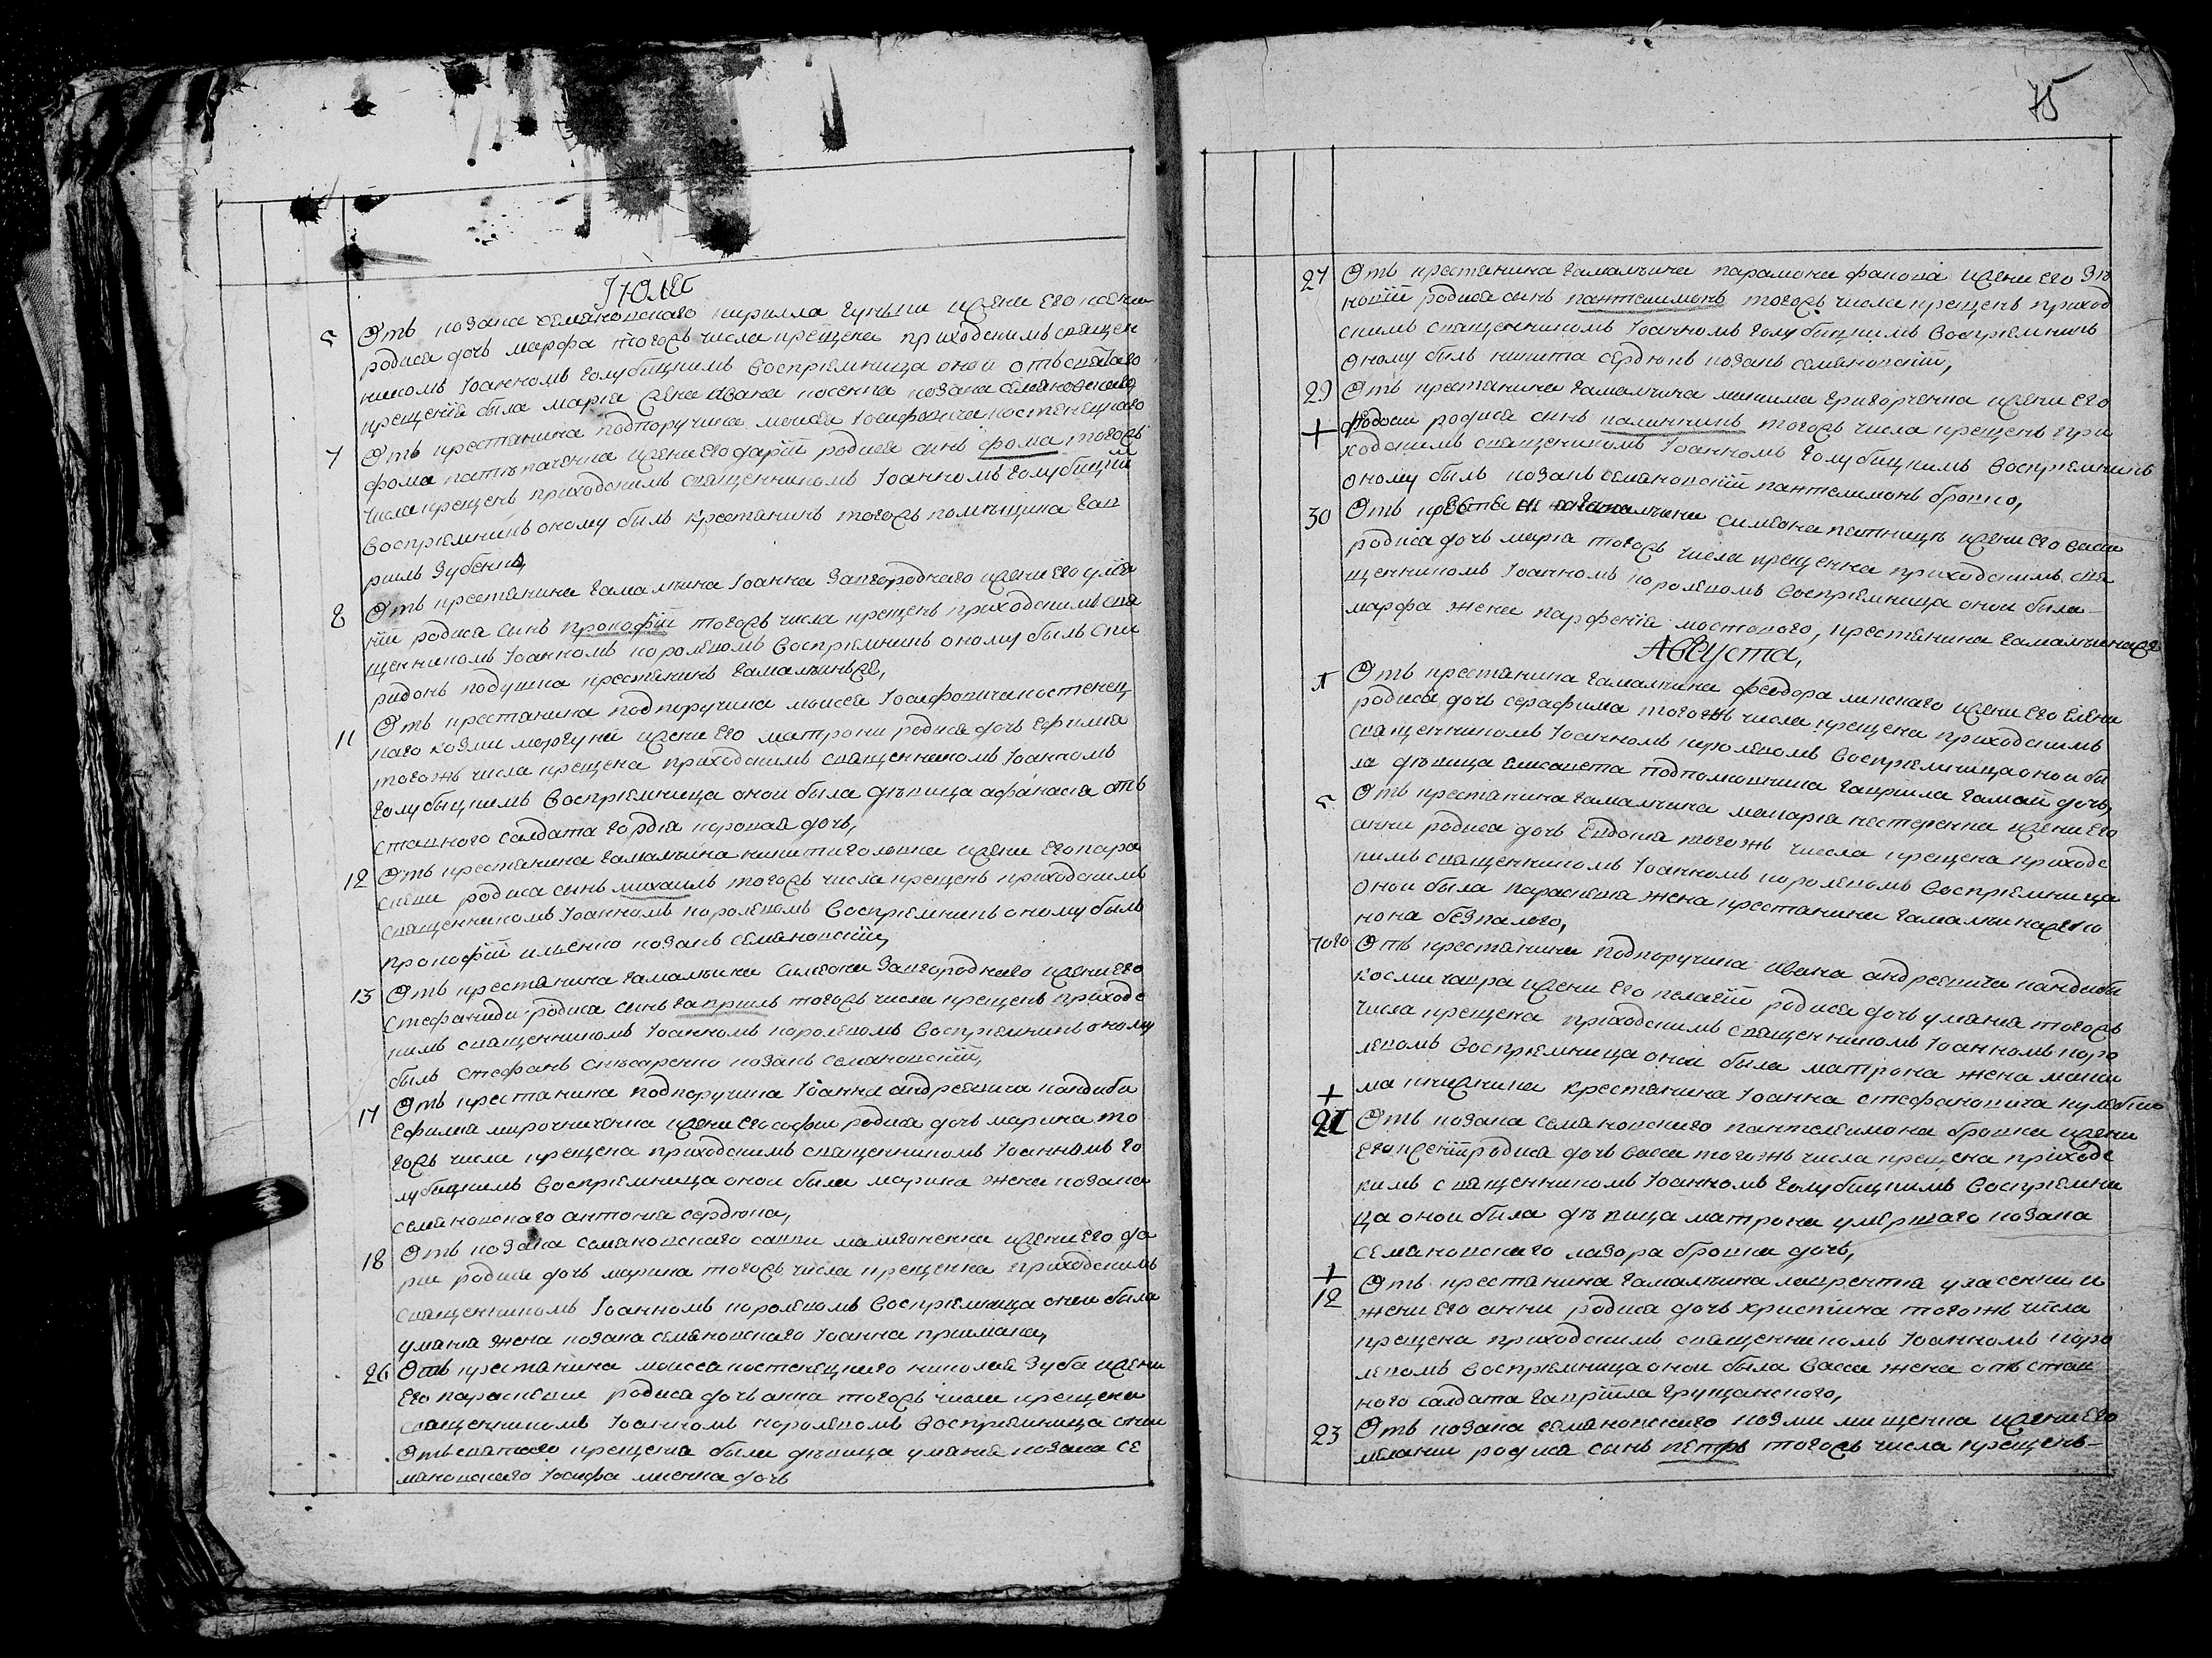 Июля
5 Отъ козака семяновского кирилла гунки жени его ксении
родися дочь марфа тогожъ числа крещена приходскимъ священ
никомъ Іоанномъ голубицкимъ восприемница оной отъ святаго
крещенія была марія жена ивана косенка козака семяновскаго
7 Отъ крестянина подпоручика моисея Іосифовича костенецкого
фома жени его дарій родися синъ фома тогожъ
числа крещенъ приходскимъ священникомъ Іоанномъ голубицкимъ
восприемникъ оному былъ крестянинъ тогожъ помѣщика гав
риилъ зубенко
8 Отъ крестянина гамалѣина Іоанна Загороднаго жени его улия
ніи родися синъ прокофій тогожъ числа крещенъ приходскимъ свя
щенникомъ Іоанномъ королевомъ восприемникъ оному былъ спи
ридонъ подушка крестянинъ гамалѣинъже,
11 Отъ крестянина подпоручика моисея Іосифовича костенец
кого козми моргуна жени его матрони родися дочь Ефимия
тогожъ числа крещена приходскимъ священникомъ Іоанномъ
голубицкимъ восприемница оной была дѣвица афанасія отъ
ставного солдата гордія коровая дочь,
12 Отъ крестянина гамалѣина никити головка жени его пара
скеви родися синъ михаилъ тогожъ числа крещенъ приходскимъ
священникомъ Іоанномъ королевомъ восприемникъ оному былъ
прокофій ильенко козакъ семяновскій,
13 Отъ крестянина гамалѣина симеона Загороднаго жени его
стефаниди родися синъ гавриилъ тогожъ числа крещенъ приходс
кимъ священникомъ Іоанномъ королевомъ восприемникъ оному
былъ стефанъ слѣсаренко козакъ семяновскій,
17 Отъ крестянина подпоручика Іоанна андреевича кандиби
Ефимия мирочниченка жени его софии родися дочь марина то
гожъ числа крещена приходскимъ священникомъ Іоанномъ го
лубицкимъ восприемница оной была марина жена козака
семяновского антонія сердюка,
18 Отъ козака семяновского савки жени его да
рии родися дочь марина тогожъ числа крещенна приходскимъ
священникомъ Іоанномъ королевомъ восприемница оной была
умания жена козака семяновского Іоанна приймака,
26 Отъ крестянина моисея костенецкого николая зуба жени
его параскеви родися дочь анна тогожъ числа крещена
священникомъ Іоанномъ королевомъ восприемница оной
отъ святаго крещения была дѣвица умания козака се
мяновского Іосифа дочь
75
27 Отъ крестянина гамалѣина парамона факова жени его
родися синъ пантелимонъ тогожъ числа крещенъ приход
скимъ священникомъ Іоанномъ голубицкимъ восприемникъ
оному былъ никита сердюкъ козакъ семяновскій,
29 Отъ крестянина гамалѣина григорченка жени его
+ федоси родися синъ калинникъ тогожъ числа крещенъ при
ходскимъ священникомъ Іоанномъ голубицкимъ восприемникъ
оному былъ козакъ семяновскій пантелимонъ бровко,
30 Отъ симеона пятницѣ жени его васи
родися дочь марія тогожъ числа крещенна приходскимъ свя
щенникомъ Іоанномъ королевомъ восприемница оной была
марфа жена парфенія мостового, крестянина гамалѣинаже
Августа,
1 Отъ крестянина гамалѣина феодора липского жени его елени
родися дочь серафима тогожъ числа крещена приходскимъ
священникомъ Іоанномъ королевомъ восприемница оной бы
ла дѣвица елисавета гавриила гамаи дочь,
5 Отъ крестянина гамалѣина макарія нестеренка жени его
анни родися дочь Евдокія тогожъ числа крещена приходс
кимъ священникомъ Іоанномъ королевомъ восприемница
оной была параскевия жена крестянина гамалѣинаже
нона безпалого,
тогo Отъ крестянина подпоручика ивана андреевича кандиби
косми чапра жени его пелагіи родися дочь умания тогожъ
числа крещена приходскимъ священникомъ Іоанномъ коро
левомъ восприемница оной была матрона жена макси
ма крестянина Іоанна стефановича
+
21 Отъ козака семяновского пантелеимона бровка жени
его ксеніи родися дочь васса тогожъ числа крещена приходс
кимъ священникомъ Іоанномъ голубицкимъ восприемни
ца оной была дѣвица матрона умершаго козака
семяновского лазора бровка дочь,
+
12 Отъ крестянина гамалѣина лаврентия уласенки и
жени его анни родися дочь христина тогожъ числа
крещена приходскимъ священникомъ Іоанномъ коро
левомъ восприемница оной была васса жена отъ став
ного солдата гавриила грущанского,
23 Отъ козака семяновского козми мищенка жени его
мелании родися синъ петръ тогожъ числа крещенъ